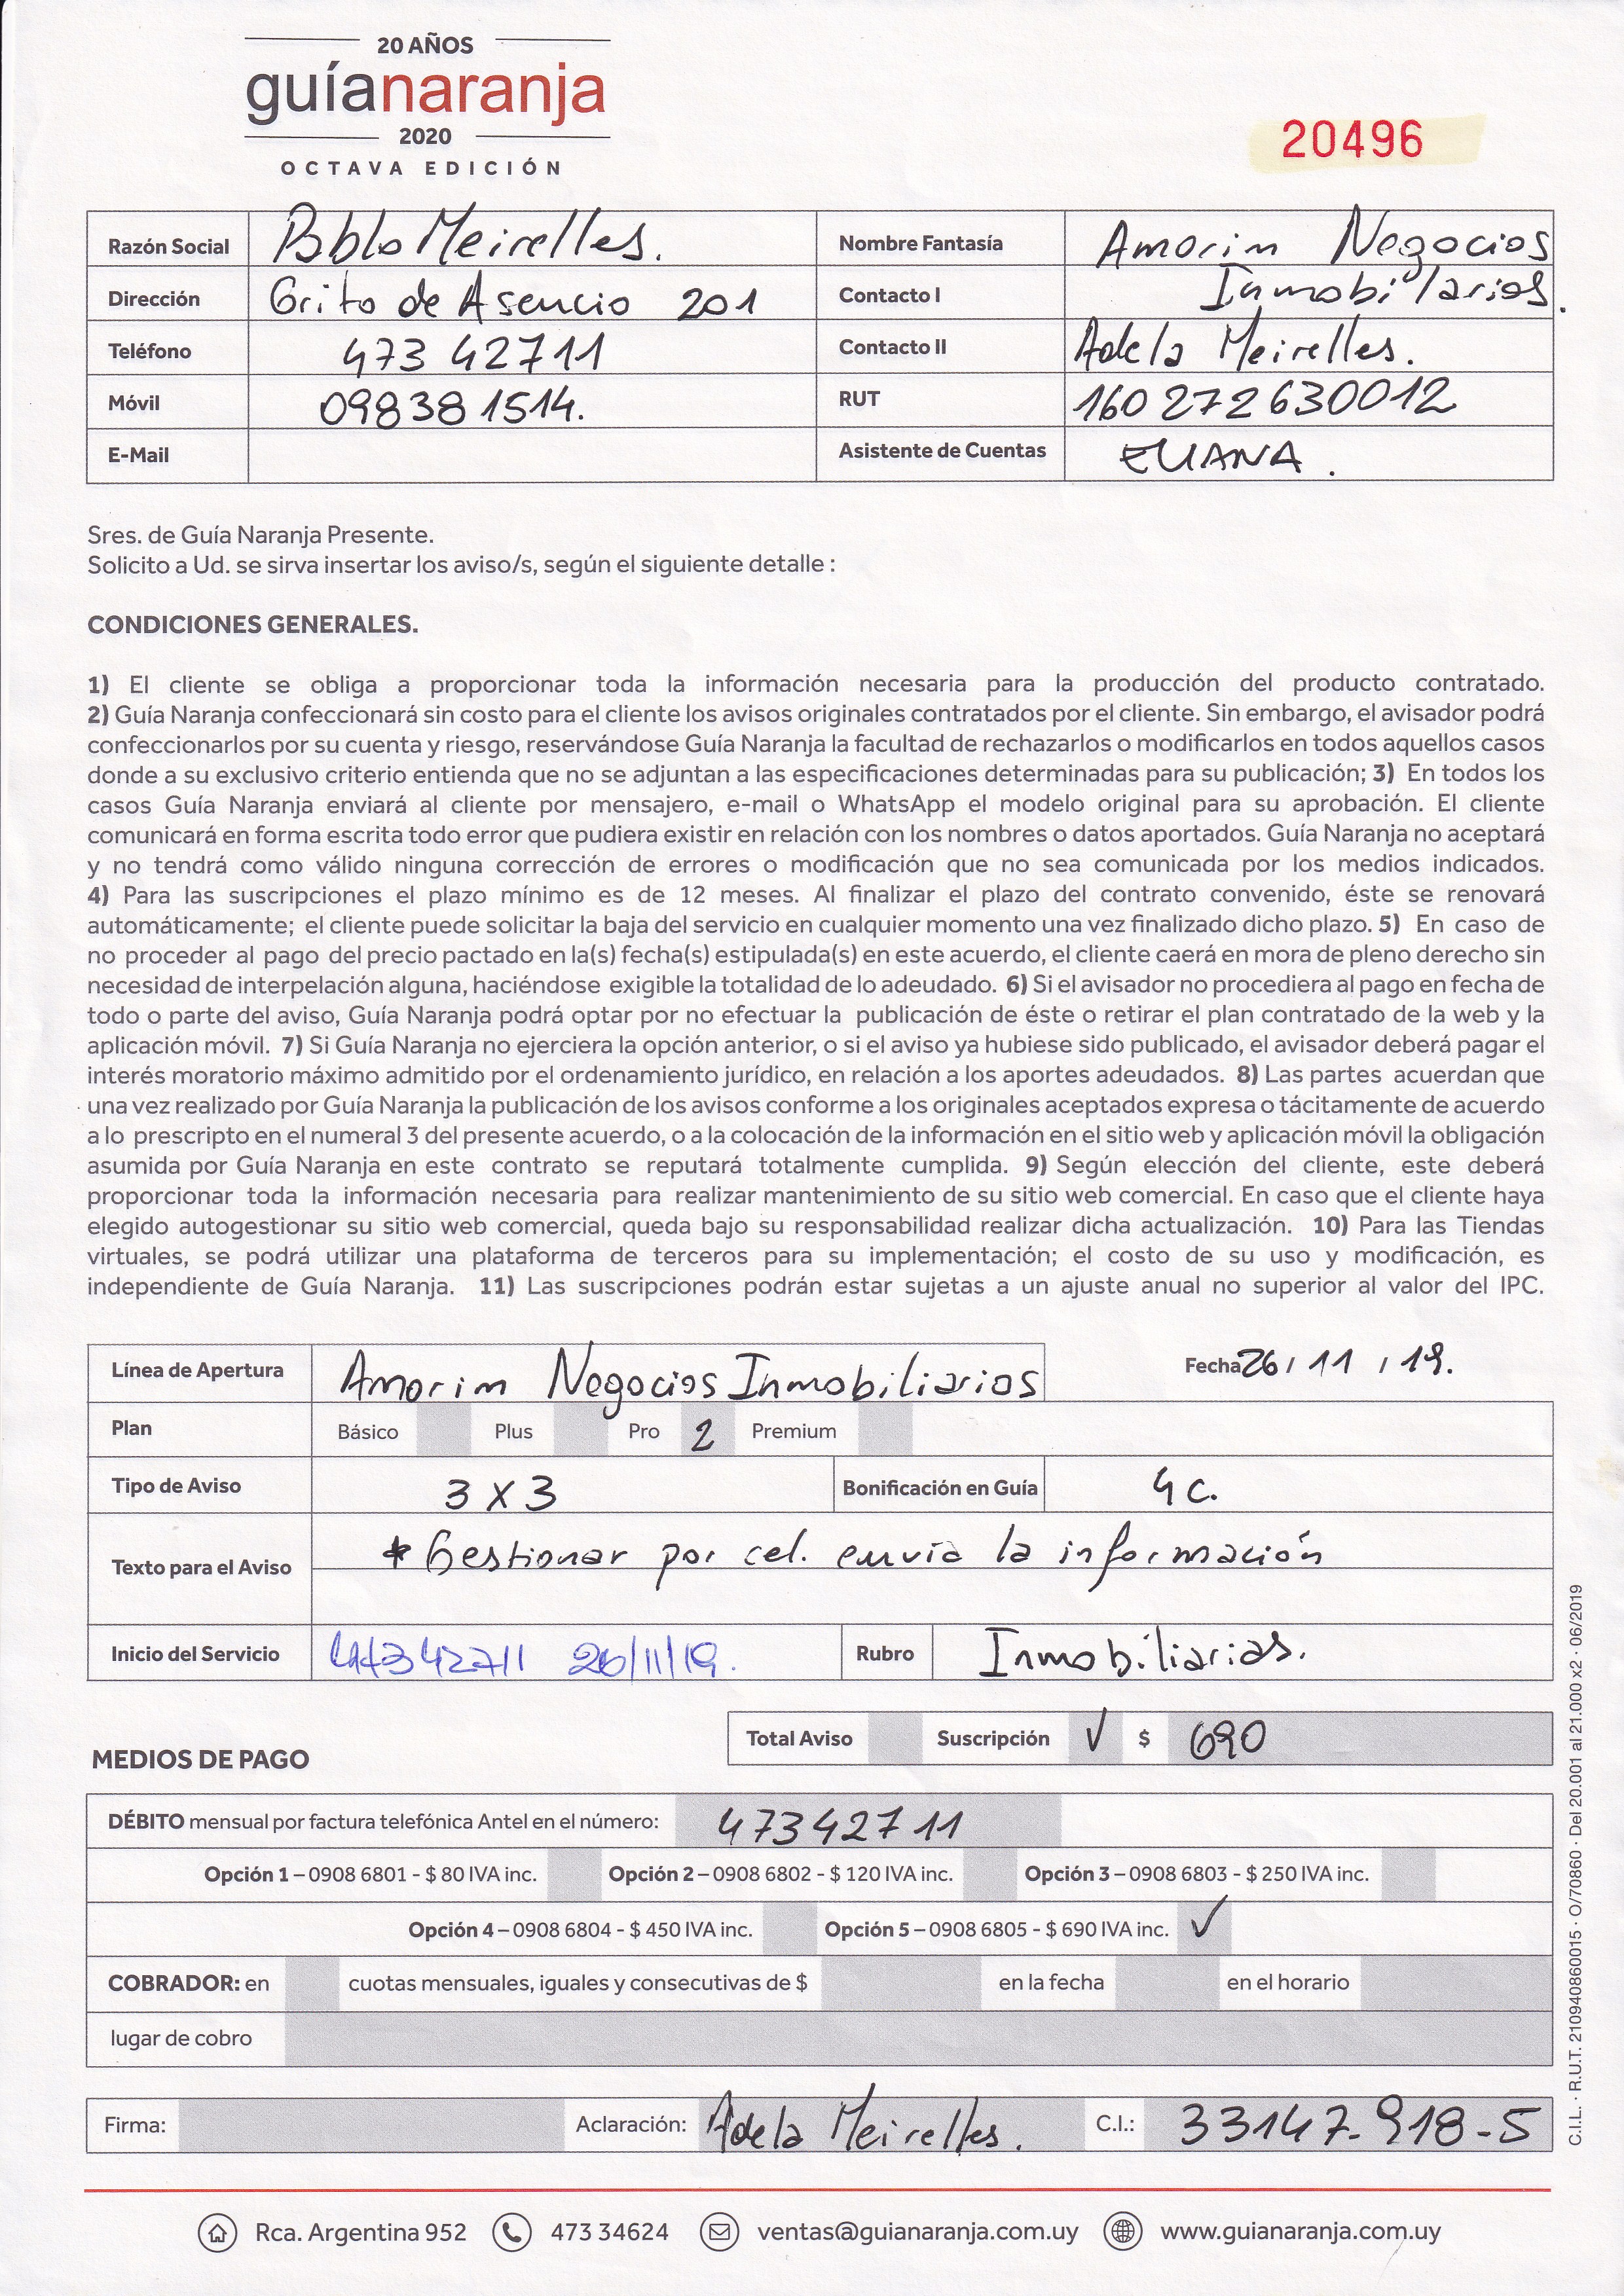 20 AÑOS
guíanaranja
2020
OCTAVA EDICIÓN
20496
Razón Social Pablo Meirelles. Nombre Fantasía Amorim Negocios
Dirección Grito de Asencio 201 Contacto I Inmobiliarios.
Teléfono 473 42711 Contacto II Adela Meirelles.
Móvil 098381514. RUT 160272630012
E-Mail Asistente de Cuentas ELIANA.
Sres. de Guía Naranja Presente.
Solicito a Ud. se sirva insertar los aviso/s, según el siguiente detalle :
CONDICIONES GENERALES.
1) El cliente se obliga a proporcionar toda la información necesaria para la producción del producto contratado.
2) Guía Naranja confeccionará sin costo para el cliente los avisos originales contratados por el cliente. Sin embargo, el avisador podrá
confeccionarlos por su cuenta y riesgo, reservándose Guía Naranja la facultad de rechazarlos o modificarlos en todos aquellos casos
donde a su exclusivo criterio entienda que no se adjuntan a las especificaciones determinadas para su publicación; 3) En todos los
casos Guía Naranja enviará al cliente por mensajero, e-mail o WhatsApp el modelo original para su aprobación. El cliente
comunicará en forma escrita todo error que pudiera existir en relación con los nombres o datos aportados. Guía Naranja no aceptará
y no tendrá como válido ninguna corrección de errores o modificación que no sea comunicada por los medios indicados.
4) Para las suscripciones el plazo mínimo es de 12 meses. Al finalizar el plazo del contrato convenido, éste se renovará
automáticamente; el cliente puede solicitar la baja del servicio en cualquier momento una vez finalizado dicho plazo. 5) En caso de
no proceder al pago del precio pactado en la(s) fecha(s) estipulada(s) en este acuerdo, el cliente caerá en mora de pleno derecho sin
necesidad de interpelación alguna, haciéndose exigible la totalidad de lo adeudado. 6) Si el avisador no procediera al pago en fecha de
todo o parte del aviso, Guía Naranja podrá optar por no efectuar la publicación de éste o retirar el plan contratado de la web y la
aplicación móvil. 7) Si Guía Naranja no ejerciera la opción anterior, o si el aviso ya hubiese sido publicado, el avisador deberá pagar el
interés moratorio máximo admitido por el ordenamiento jurídico, en relación a los aportes adeudados. 8) Las partes acuerdan que
una vez realizado por Guía Naranja la publicación de los avisos conforme a los originales aceptados expresa o tácitamente de acuerdo
a lo prescripto en el numeral 3 del presente acuerdo, o a la colocación de la información en el sitio web y aplicación móvil la obligación
asumida por Guía Naranja en este contrato se reputará totalmente cumplida. 9) Según elección del cliente, este deberá
proporcionar toda la información necesaria para realizar mantenimiento de su sitio web comercial. En caso que el cliente haya
elegido autogestionar su sitio web comercial, queda bajo su responsabilidad realizar dicha actualización. 10) Para las Tiendas
virtuales, se podrá utilizar una plataforma de terceros para su implementación; el costo de su uso y modificación, es
independiente de Guía Naranja. 11) Las suscripciones podrán estar sujetas a un ajuste anual no superior al valor del IPC.
Línea de Apertura Amorim Negocios Inmobiliarios Fecha 26 / 11 / 19.
Plan Básico Plus Pro 2 Premium
Tipo de Aviso 3 x 3 Bonificación en Guía 4 c.
Texto para el Aviso * Gestionar por cel. envía la información
Inicio del Servicio 47342711 26/11/19. Rubro Inmobiliarias.
Total Aviso Suscripción ✓ $ 690
MEDIOS DE PAGO
DÉBITO mensual por factura telefónica Antel en el número: 47342711
Opción 1 – 0908 6801 - $ 80 IVA inc. Opción 2 – 0908 6802 - $ 120 IVA inc. Opción 3 – 0908 6803 - $ 250 IVA inc.
Opción 4 – 0908 6804 - $ 450 IVA inc. Opción 5 – 0908 6805 - $ 690 IVA inc. ✓
COBRADOR: en cuotas mensuales, iguales y consecutivas de $ en la fecha en el horario
lugar de cobro
Firma: Aclaración: Adela Meirelles. C.I.: 33147-918-5
C.I.L. · R.U.T. 210940860015 · O/70860 · Del 20.001 al 21.000 x2 · 06/2019
Rca. Argentina 952 473 34624 ventas@guianaranja.com.uy www.guianaranja.com.uy